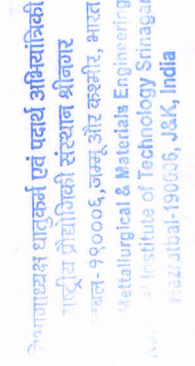 विभागाध्यक्ष धातुकर्म एवं पदार्थ अभियांत्रिकी
राष्ट्रीय प्रौद्योगिकी संस्थान श्रीनगर
-१९०००६, जम्मू और कश्मीर, भारत
Metallurgical & Materials Engineering
Institute of Technology Srinagar
Hazratbal-190006, J&K, India